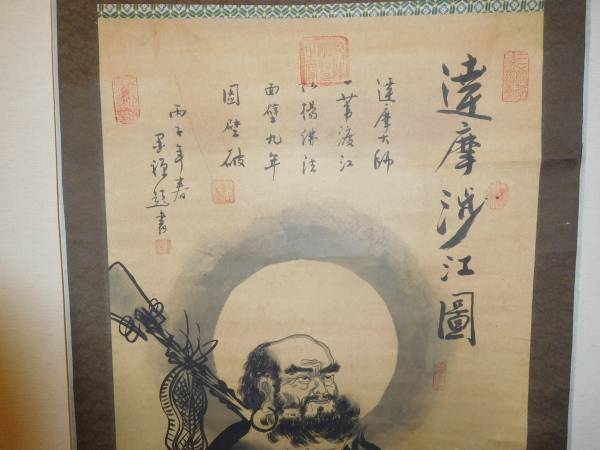 達摩涉江圖
達摩大師
一葦渡江
弘揚佛法
面壁九年
圆壁破
丙子年春
墨禅題書